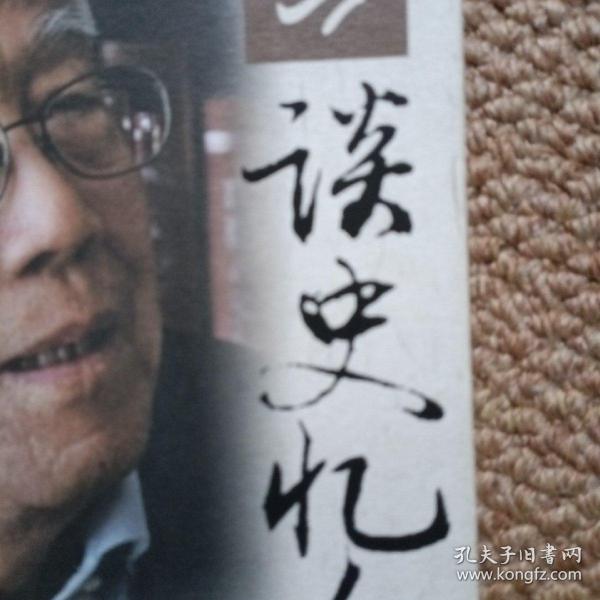 谈史忆
孔夫子旧書网
www.kongfz.com